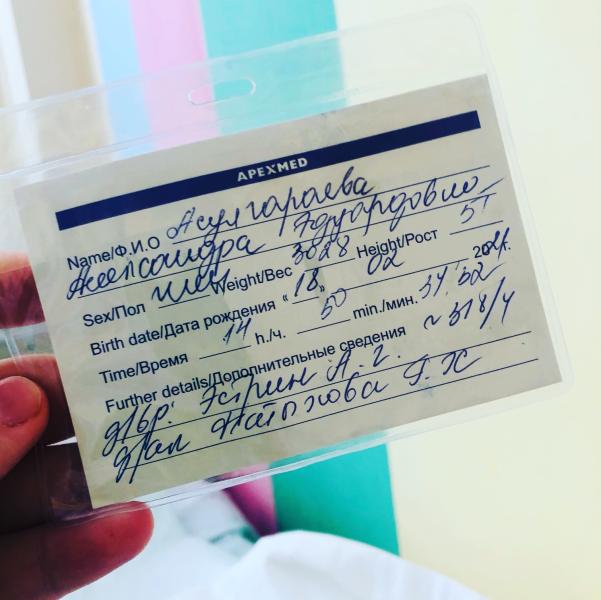 APEXMED
Name/Ф.И.О Асулгараева
Александра Эдуардовна
Sex/Пол жен Weight/Вес 3028 Height/Рост 51
Birth date/Дата рождения "18" 02 2021.
Time/Время 14 h./ч. 50 min./мин. 34 32
Further details/Дополнительные сведения ~ 318/4
Эстрин А. Г.